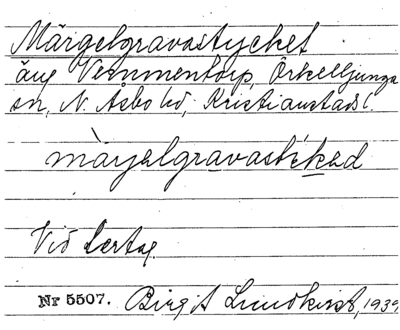 Märgelgravastycket
äng Vemmentorp, Örkelljunga
sn, N. Åsbo hd, Kristianstads l.
Vid lertag.
Nr 5507. Birgit Lundkvist, 1939